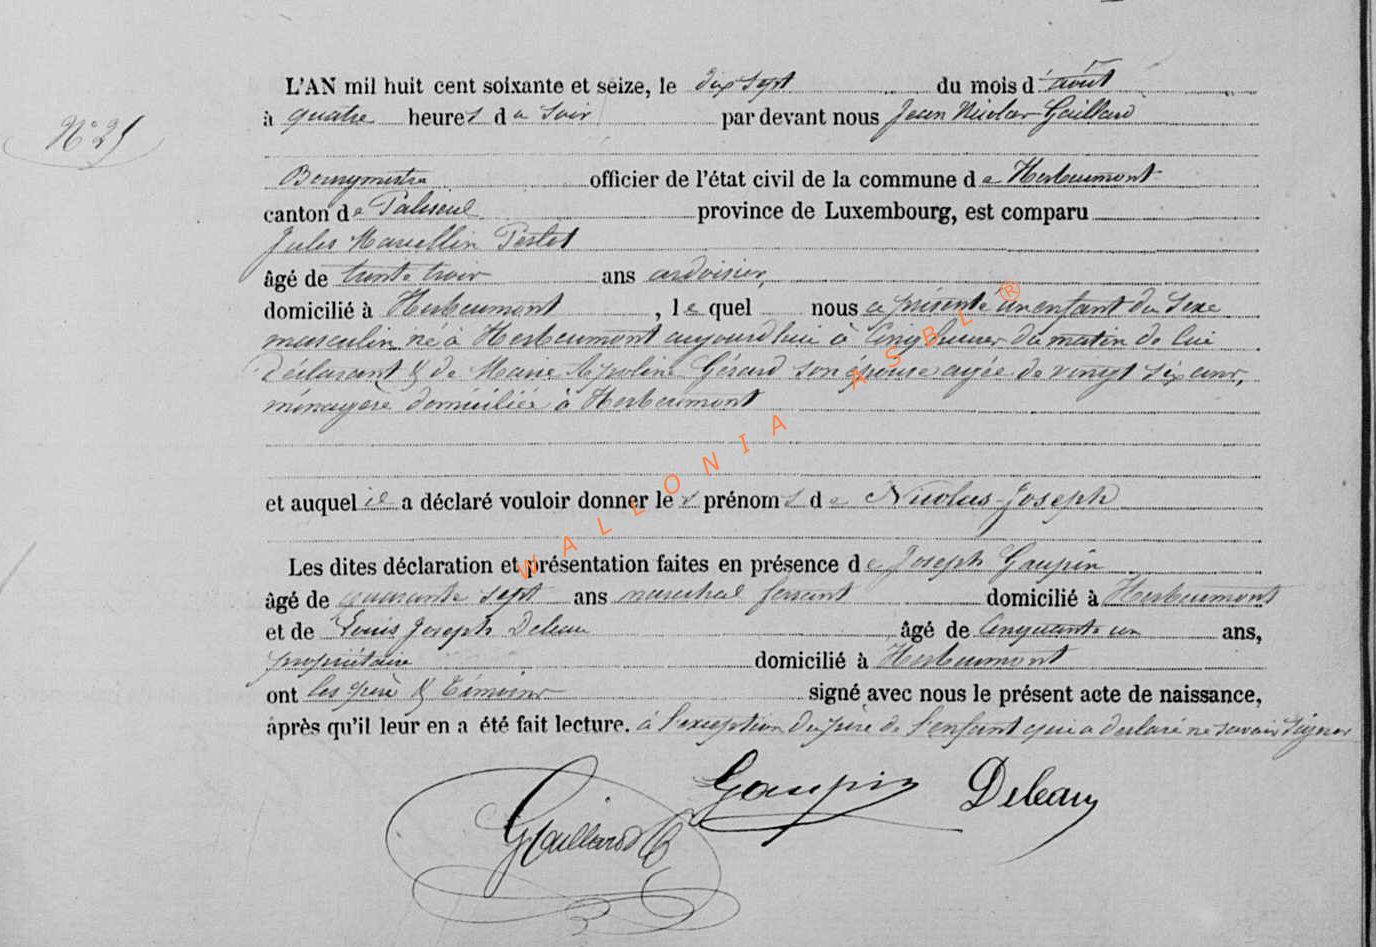 L'AN mil huit cent soixante et seize, le dix sept du mois d'août
N° 25
à quatre heures du soir par devant nous Jean Nicolas Gaillard
Bourgmestre officier de l'état civil de la commune de Herbeumont
canton de Paliseul province de Luxembourg, est comparu
Jules Marcellin
âgé de trente trois ans ardoisier,
domicilié à Herbeumont, lequel nous a présenté un enfant du sexe
masculin né à Herbeumont aujourd'hui à cinq heures du matin de lui
déclarant & de Marie Apoline Gérard son épouse agée de vingt six ans,
ménagère domiciliée à Herbeumont
et auquel il a déclaré vouloir donner les prénoms de Nicolas-Joseph
Les dites déclaration et présentation faites en présence de Joseph Gaupin
âgé de quarante sept ans marechal ferrant domicilié à Herbeumont
et de Louis Joseph Deleau âgé de cinquante un ans,
propriétaire domicilié à Herbeumont
ont les père & témoins signé avec nous le présent acte de naissance,
après qu'il leur en a été fait lecture. à l'exception du père de l'enfant qui a declaré ne savoir signer
Gaupin Deleau
Gaillard
WALLONIA ASBL ®